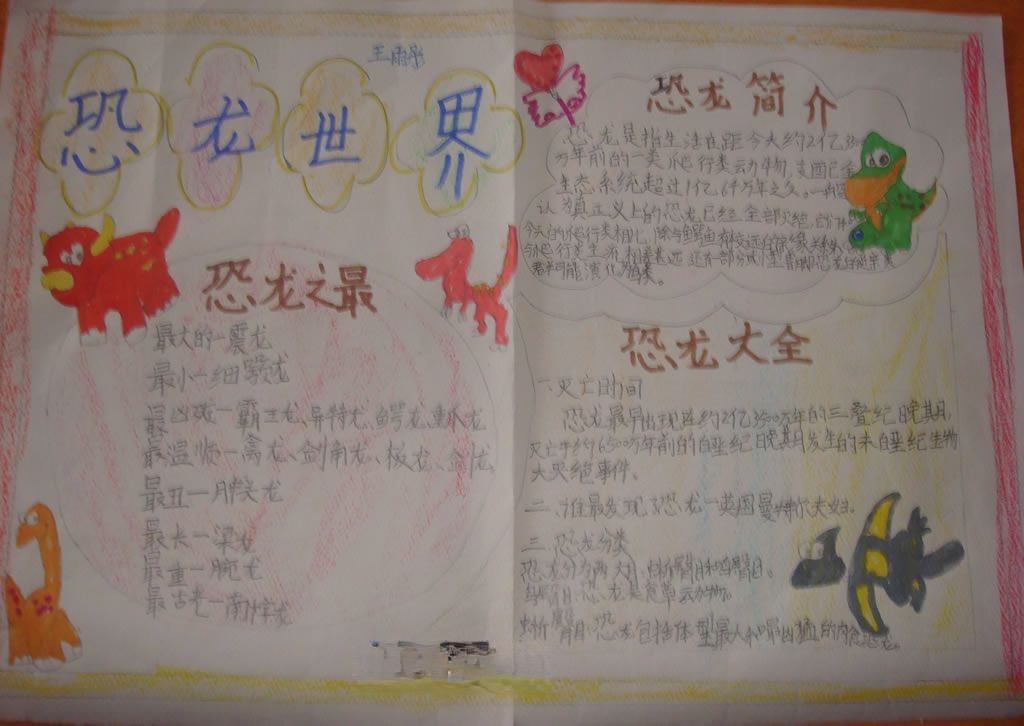 王雨彤
恐龙世界
恐龙之最
最大的—震龙
最小—细颚龙
最凶残—霸王龙、异特龙、鳄龙、重爪龙
最温顺—禽龙、剑角龙、板龙、剑龙
最丑—肿头龙
最长—梁龙
最重—腕龙
最古老—南十字龙
恐龙简介
恐龙是指生活在距今大约2亿3500
万年前的一类爬行类动物,支配
生态系统超过1亿6千万年之久。一般
认为真正义上的恐龙已经全部灭绝
今天的爬行类相比,除与鳄鱼有较远的亲缘关系
今爬行类生
可能演化为鸟类。
恐龙大全
一、灭亡时间
恐龙最早出现在约2亿3500万年的三叠纪晚期,
灭亡于约6500万年前的白垩纪晚期发生的末白垩纪生物
大灭绝事件。
二、谁最发现了恐龙—英国曼特尔夫妇。
三、恐龙分类
恐龙分为两大目,蜥臀目和鸟臀目。
鸟臀目恐龙是食草动物。
蜥臀目恐龙包括体型最大和最凶猛的肉食恐龙。